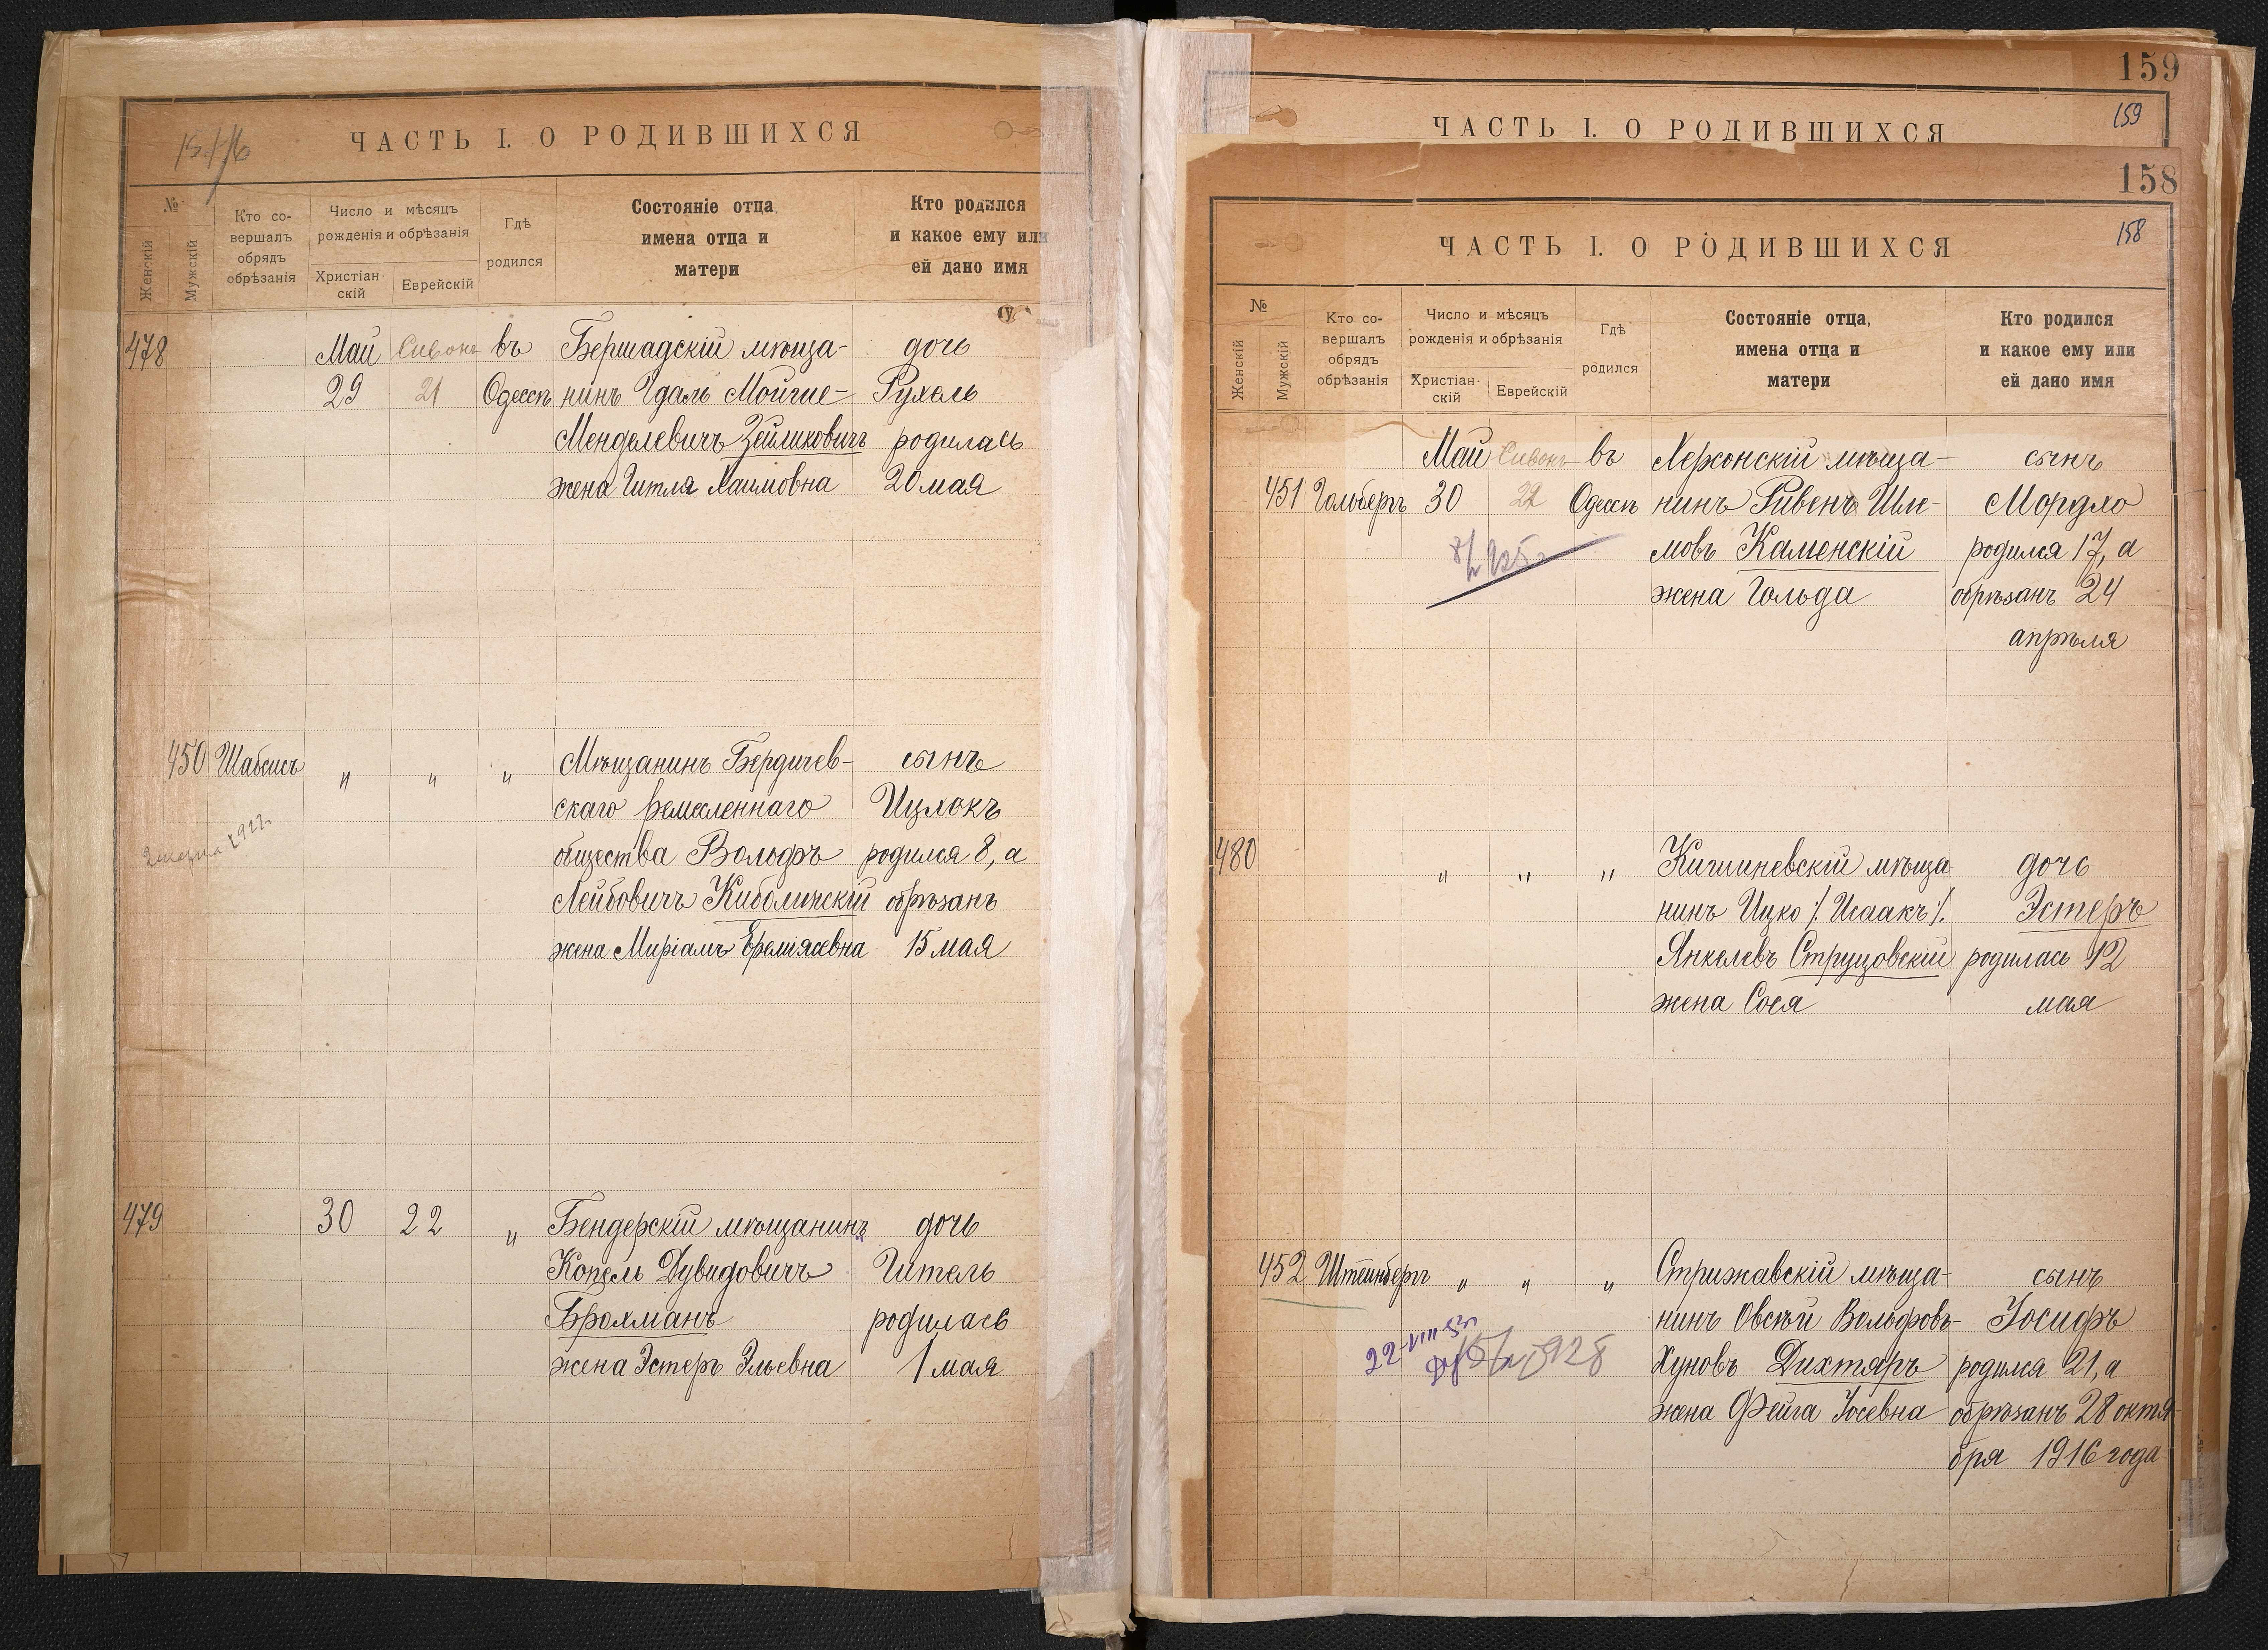 ЧАСТЬ I. О РОДИВШИХСЯ
№
Женскій
Мужскій
Кто со-
вершалъ
обрядъ
обрѣзанія
Число и мѣсяцъ
рожденія и обрѣзанія
Христіан-
скій
Еврейскій
Гдѣ
родился
Состояніе отца,
имена отца и
матери
Кто родился
и какое ему или
ей дано имя
478 Май Сивонъ въ Бершадскій мѣща- дочь
29 21 Одессѣ нинъ Идаль Мойше- Рухель
Менделевичъ Зейликовичъ родилась
жена Гитля Хаимовна 20 мая
450 Шабсисъ " " " Мѣщанинъ Бердичев- сынъ
скаго ремесленнаго Ицхокъ
общества Вольфъ родился 8, а
Лейбовичъ обрѣзанъ
жена Миріамъ Еремiяевна 15 мая
479 30 22 " Бендерскій мѣщанинъ дочь
Копель Дувидовичъ Гитель
Брохманъ родилась
жена Эстеръ Эльевна 1 мая
159
159
ЧАСТЬ I. О РОДИВШИХСЯ
158
158
ЧАСТЬ I. О РОДИВШИХСЯ
№
Женскій
Мужскій
Кто со-
вершалъ
обрядъ
обрѣзанія
Число и мѣсяцъ
рожденія и обрѣзанія
Христіан-
скій
Еврейскій
Гдѣ
родился
Состояніе отца,
имена отца и
матери
Кто родился
и какое ему или
ей дано имя
Май Сивонъ въ Херсонскій мѣща- сынъ
451 Гольбергъ 30 22 Одессѣ нинъ Ривенъ Шле- Мордхо
мовъ Каменскій родился 17, а
жена Гольда обрѣзанъ 24
апрѣля
480 " " " Кишиневскій мѣща- дочь
нинъ Ицко /. Исаакъ /. Эстеръ
Янкелевъ Струцовскій родилась 12
жена Сося мая
452 Штейнбергъ " " " Стрижавскій мѣща- сынъ
нинъ Овсѣй Вольфовъ- Іосифъ
Хуновъ Дихтяръ родился 21, а
жена Фейга Іосевна обрѣзанъ 28 октя-
бря 1916 года